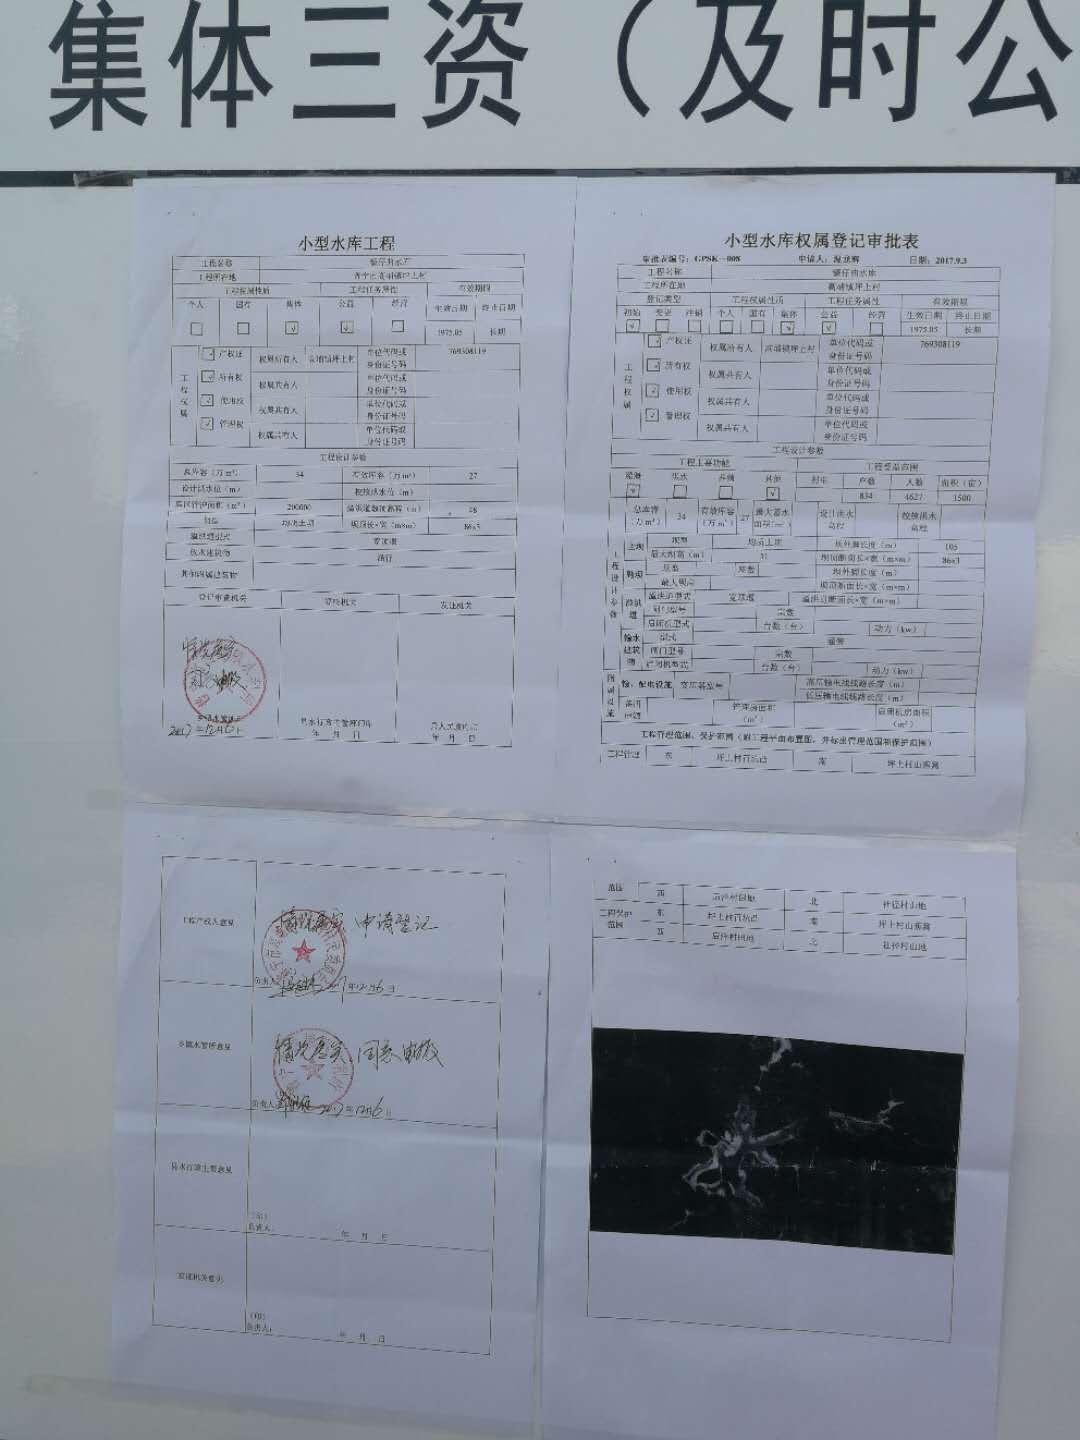 集体三资（及时公
小型水库工程
工程名称
工程所在地
工程权属性质 工程任务属性 有效期限
个人 国有 集体 公益 经营 生效日期 终止日期
√ √ 1975.05 长期
工程权属
√ 产权证 权属所有人 高埔镇坪上村 单位代码或身份证号码 769308119
√ 所有权 权属共有人 单位代码或身份证号码
√ 使用权 权属共有人 单位代码或身份证号码
√ 管理权 权属共有人 单位代码或身份证号码
工程设计参数
总库容（万m³） 34 有效库容（万m³） 27
设计洪水位（m） 校核洪水位（m）
库区管护面积（m²） 200000 溢洪道坝顶高程（m） 48
坝型 均质土坝 坝顶长×宽（m×m） 86x3
溢洪道型式 宽顶堰
放水建筑物 涵管
其他附属建筑物
登记审查机关 审核机关 发证机关
情况属实
同意审核
乡镇水管单位
2017年12月6日
县水行政主管部门印
年 月 日
县人民政府印
年 月 日
小型水库权属登记审批表
审批表编号：GPSK—008 申请人： 日期：2017.9.3
工程名称
工程所在地 高埔镇坪上村
登记类型 工程权属性质 工程任务属性 有效期限
初始 变更 注销 个人 国有 集体 公益 经营 生效日期 终止日期
√ √ √ 1975.05 长期
工程权属
√ 产权证 权属所有人 高埔镇坪上村 单位代码或身份证号码 769308119
√ 所有权 权属共有人 单位代码或身份证号码
√ 使用权 权属共有人 单位代码或身份证号码
√ 管理权 权属共有人 单位代码或身份证号码
工程设计参数
工程主要功能 工程受益范围
灌溉 供水 养殖 其他 村屯 户数 人数 面积（亩）
√ √ 834 4627 1500
总库容（万m³） 34 有效库容（万m³） 27 最大蓄水面积（m²） 设计洪水高程 校核洪水高程
工程设计参数
主坝 坝型 均质土坝 坝外脚长度（m） 105
最大坝高（m） 坝顶断面长×宽（m×m） 86x3
副坝 坝型 座数 坝外脚长度（m）
最大坝高 坝顶断面长×宽（m×m）
溢洪道 溢洪道型式 宽顶堰 溢洪道断面长×宽（m×m）
闸门型号 扇数
启闭机型式 台数（台） 动力（kw）
输水建筑物 型式 涵管
闸门型号 扇数
启闭机型式 台数（台） 动力（kw）
附属设施 输、配电设施 变压器型号 高压输电线线路长度（m）
低压输电线线路长度（m）
管理房面积（m²） 启闭机房面积（m²）
工程管理范围、保护范围（附工程平面布置图，并标出管理范围和保护范围）
工程管理 东 坪上村 南 坪上村山
工程产权人意见
情况属实 申请登记
负责人 2017年12月6日
乡镇水管所意见
情况属实 同意审核
负责人 2017年12月6日
县水行政主管意见
（印）
负责人： 年 月 日
发证机关意见
（印）
负责人： 年 月 日
范围 西 北
工程保护范围 东 坪上村 南 坪上村山
西 北